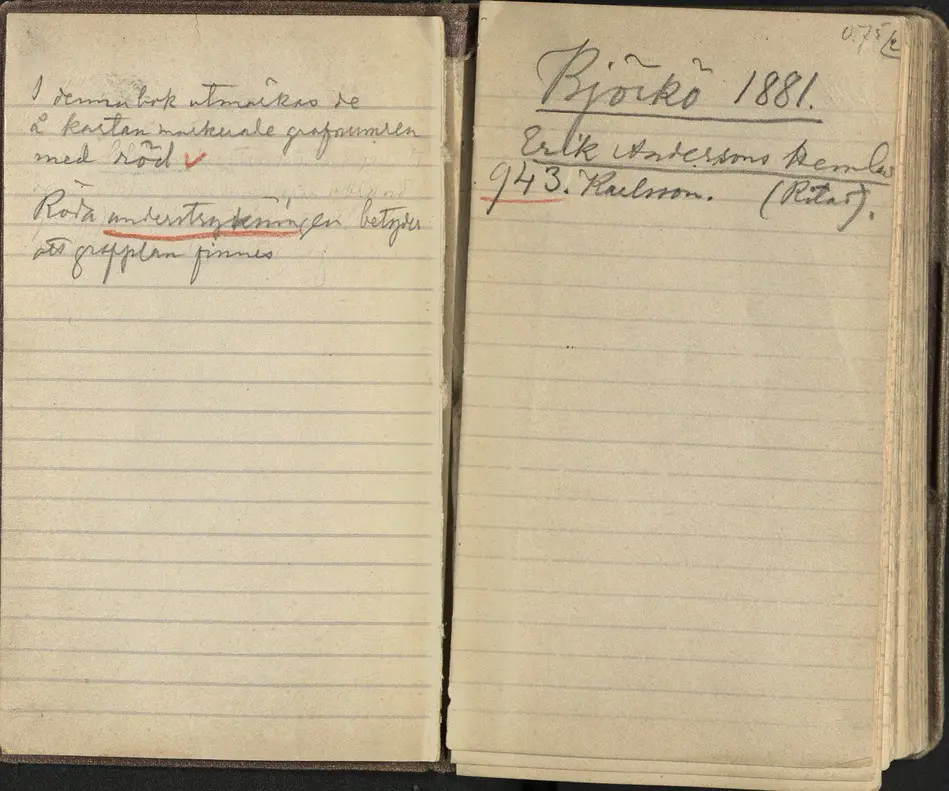 I denna bok utmärkas de
å kartan markerade grafnumren
med röd ✓
Röda understrykningen betyder
att grafplan finnes
0.75
Björkö 1881.
Erik Anderssons Hemlan
943. Karlsson. (Ritad).